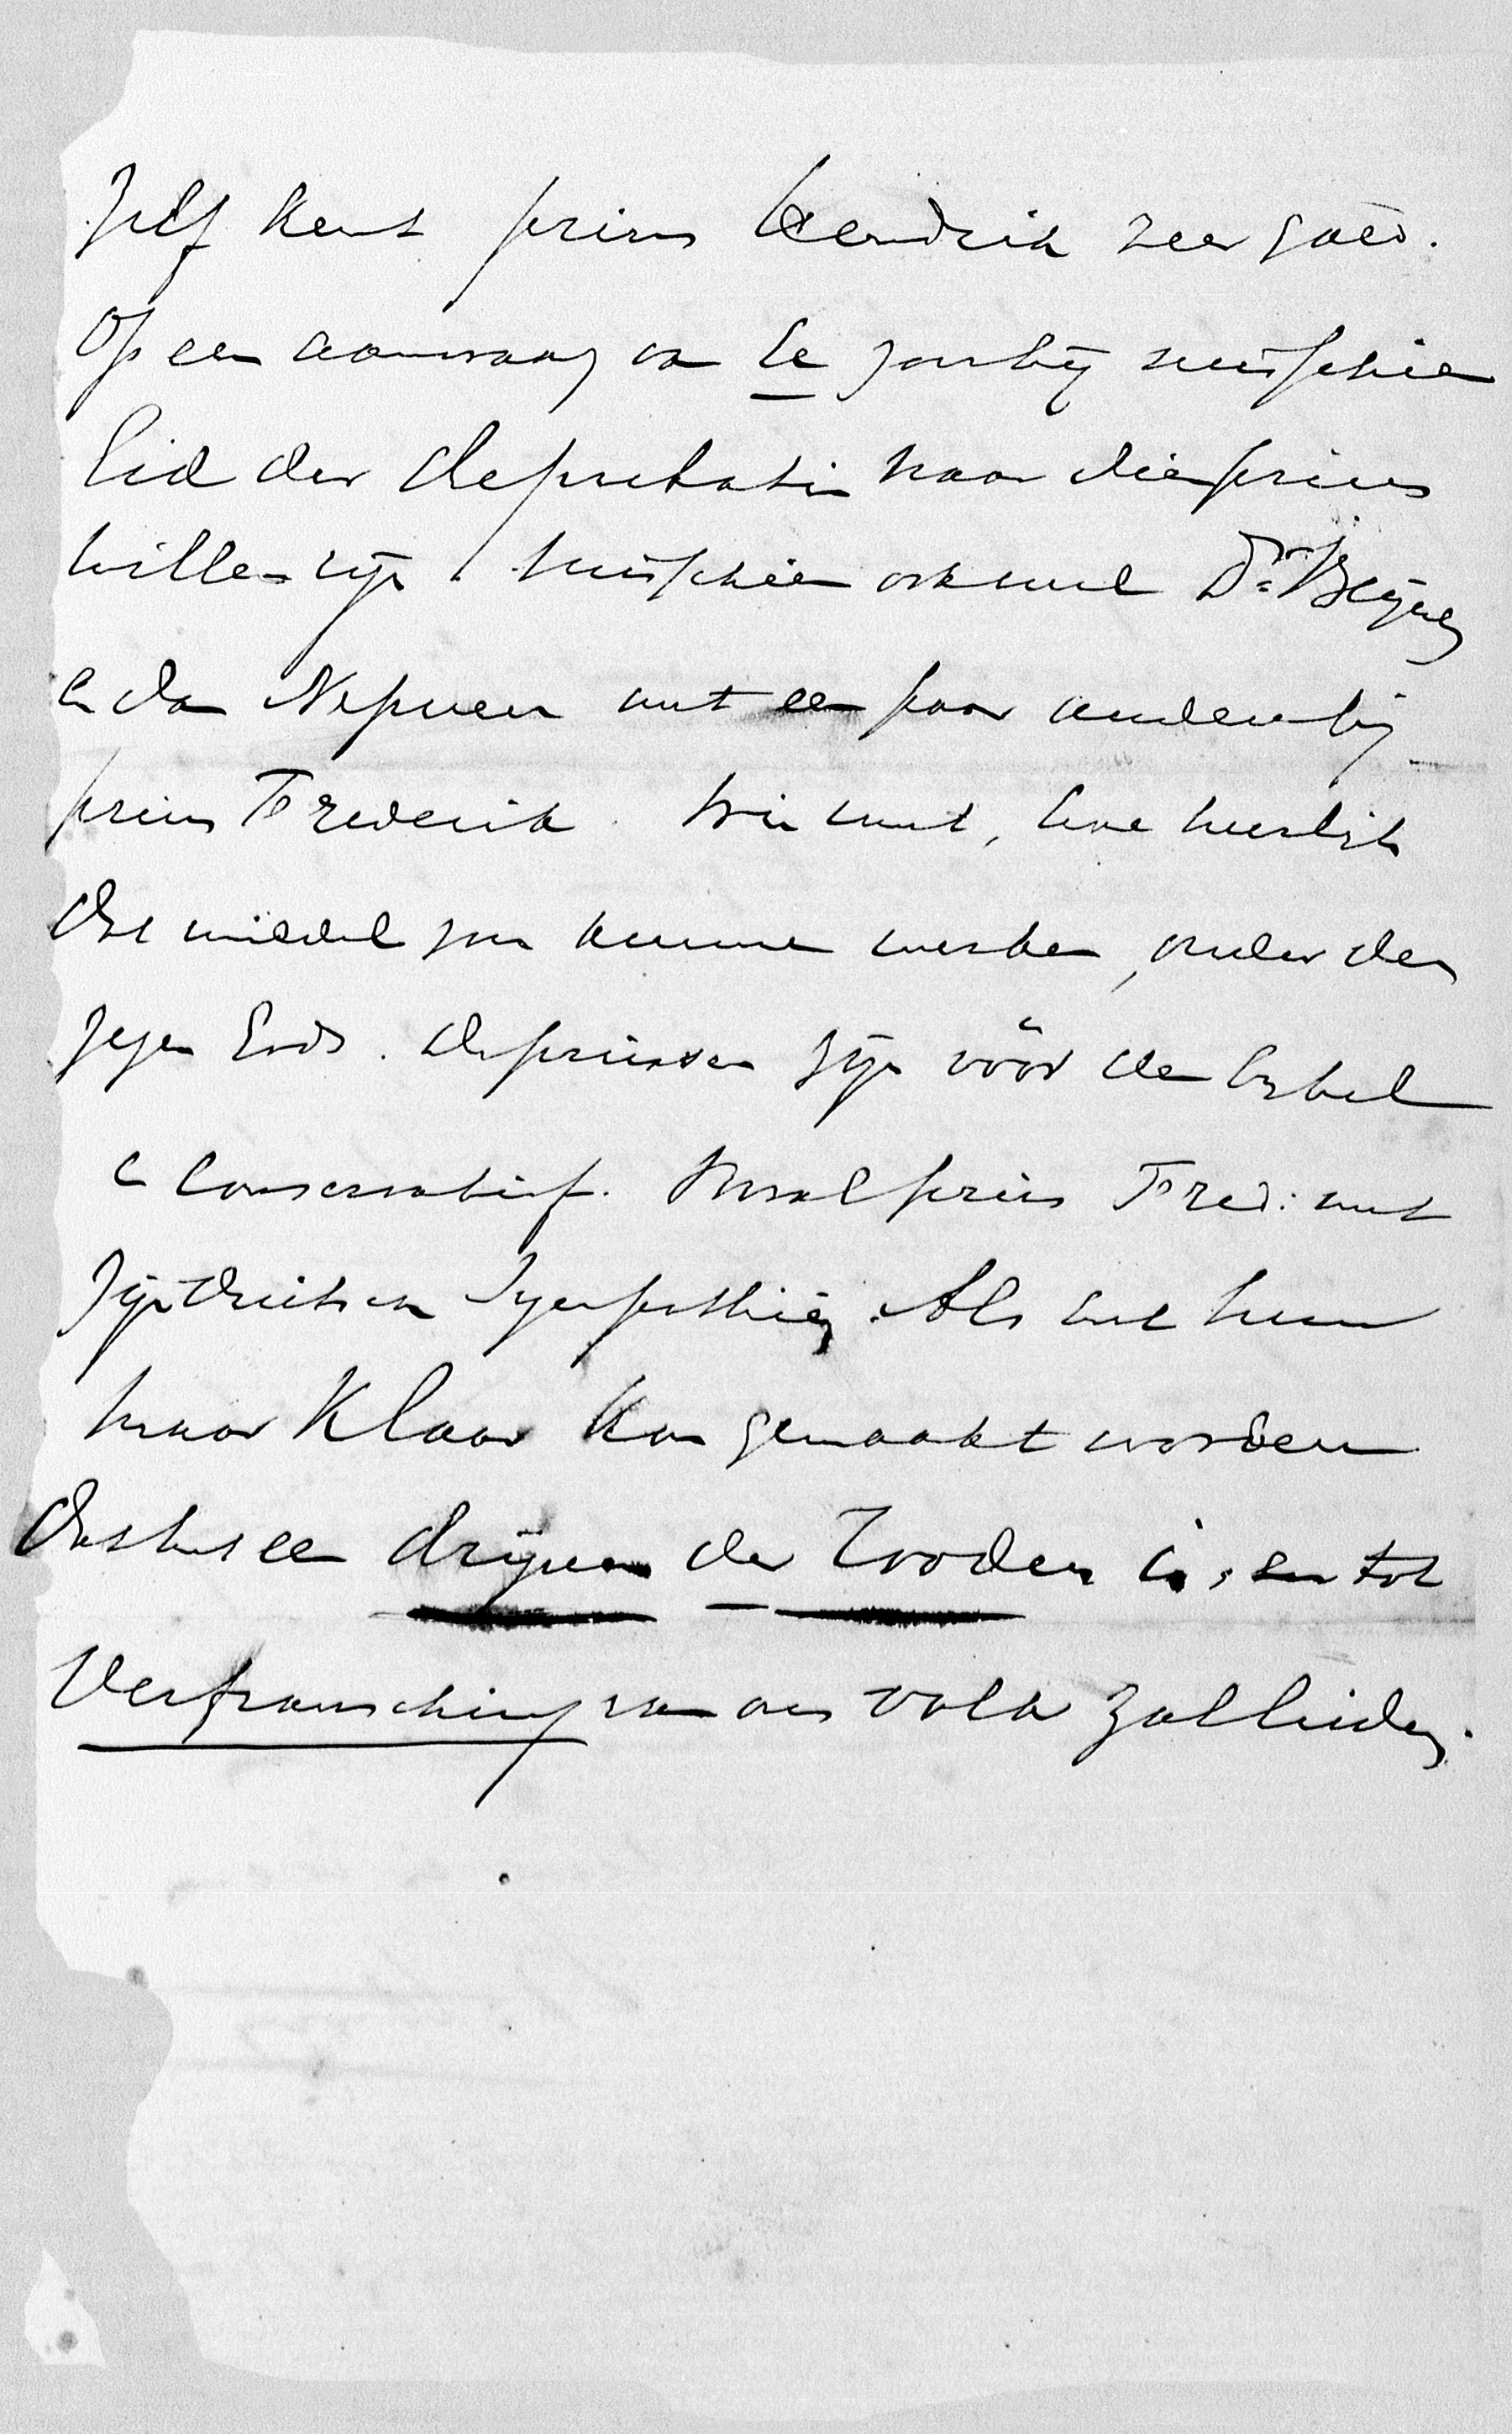 zelf kent prins Hendrik zeer goed.
Op een aanvraag van U zou hij misschien
lid der deputatie naar dien prins
willen zijn. Misschien ook wel Dr Beijnen
en dan Nepveu met een paar anderen bij
prins Frederik. Wie weet, hoe heerlijk
dat middel zou kunnen werken, onder den
zegen Gods. De prinsen zijn vóór den bybel
en conservatief. Vooral prins Fred: met
zijn duitschen sympathien. Als het hun
maar klaar kan gemaakt worden
dat het een drijven der Looden is, en tot
Verfransching van ons volk zal leiden.